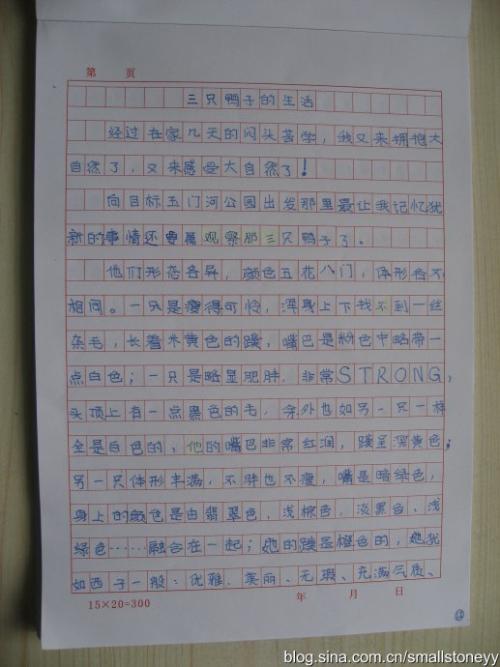 第 页
三只鸭子的生活
经过在家几天的闷头苦学，我又来拥抱大
自然了，又来感受大自然了！
向目标五门河公园出发那里最让我记忆犹
新的事情还要属观察那三只鸭子了。
他们形态各异，颜色五花八门，体形各不
相同。一只是瘦得可怜，浑身上下找不到一丝
杂毛，长着米黄色的蹼，嘴巴是粉色中略带一
点白色；一只是略显肥胖，非常STRONG，
头顶上有一点黑色的毛，另外也如另一只一样
全是白色的，他的嘴巴非常红润，蹼呈深黄色；
另一只体形丰满，不胖也不瘦，嘴是暗绿色，
身上的颜色是由翡翠色，浅棕色，淡黑色，浅
绿色……融合在一起；她的蹼是橙色的，她犹
如西子一般：优雅、美丽、无瑕、充满气质、
15×20=300 年 月 日
blog.sina.com.cn/smallstoneyy